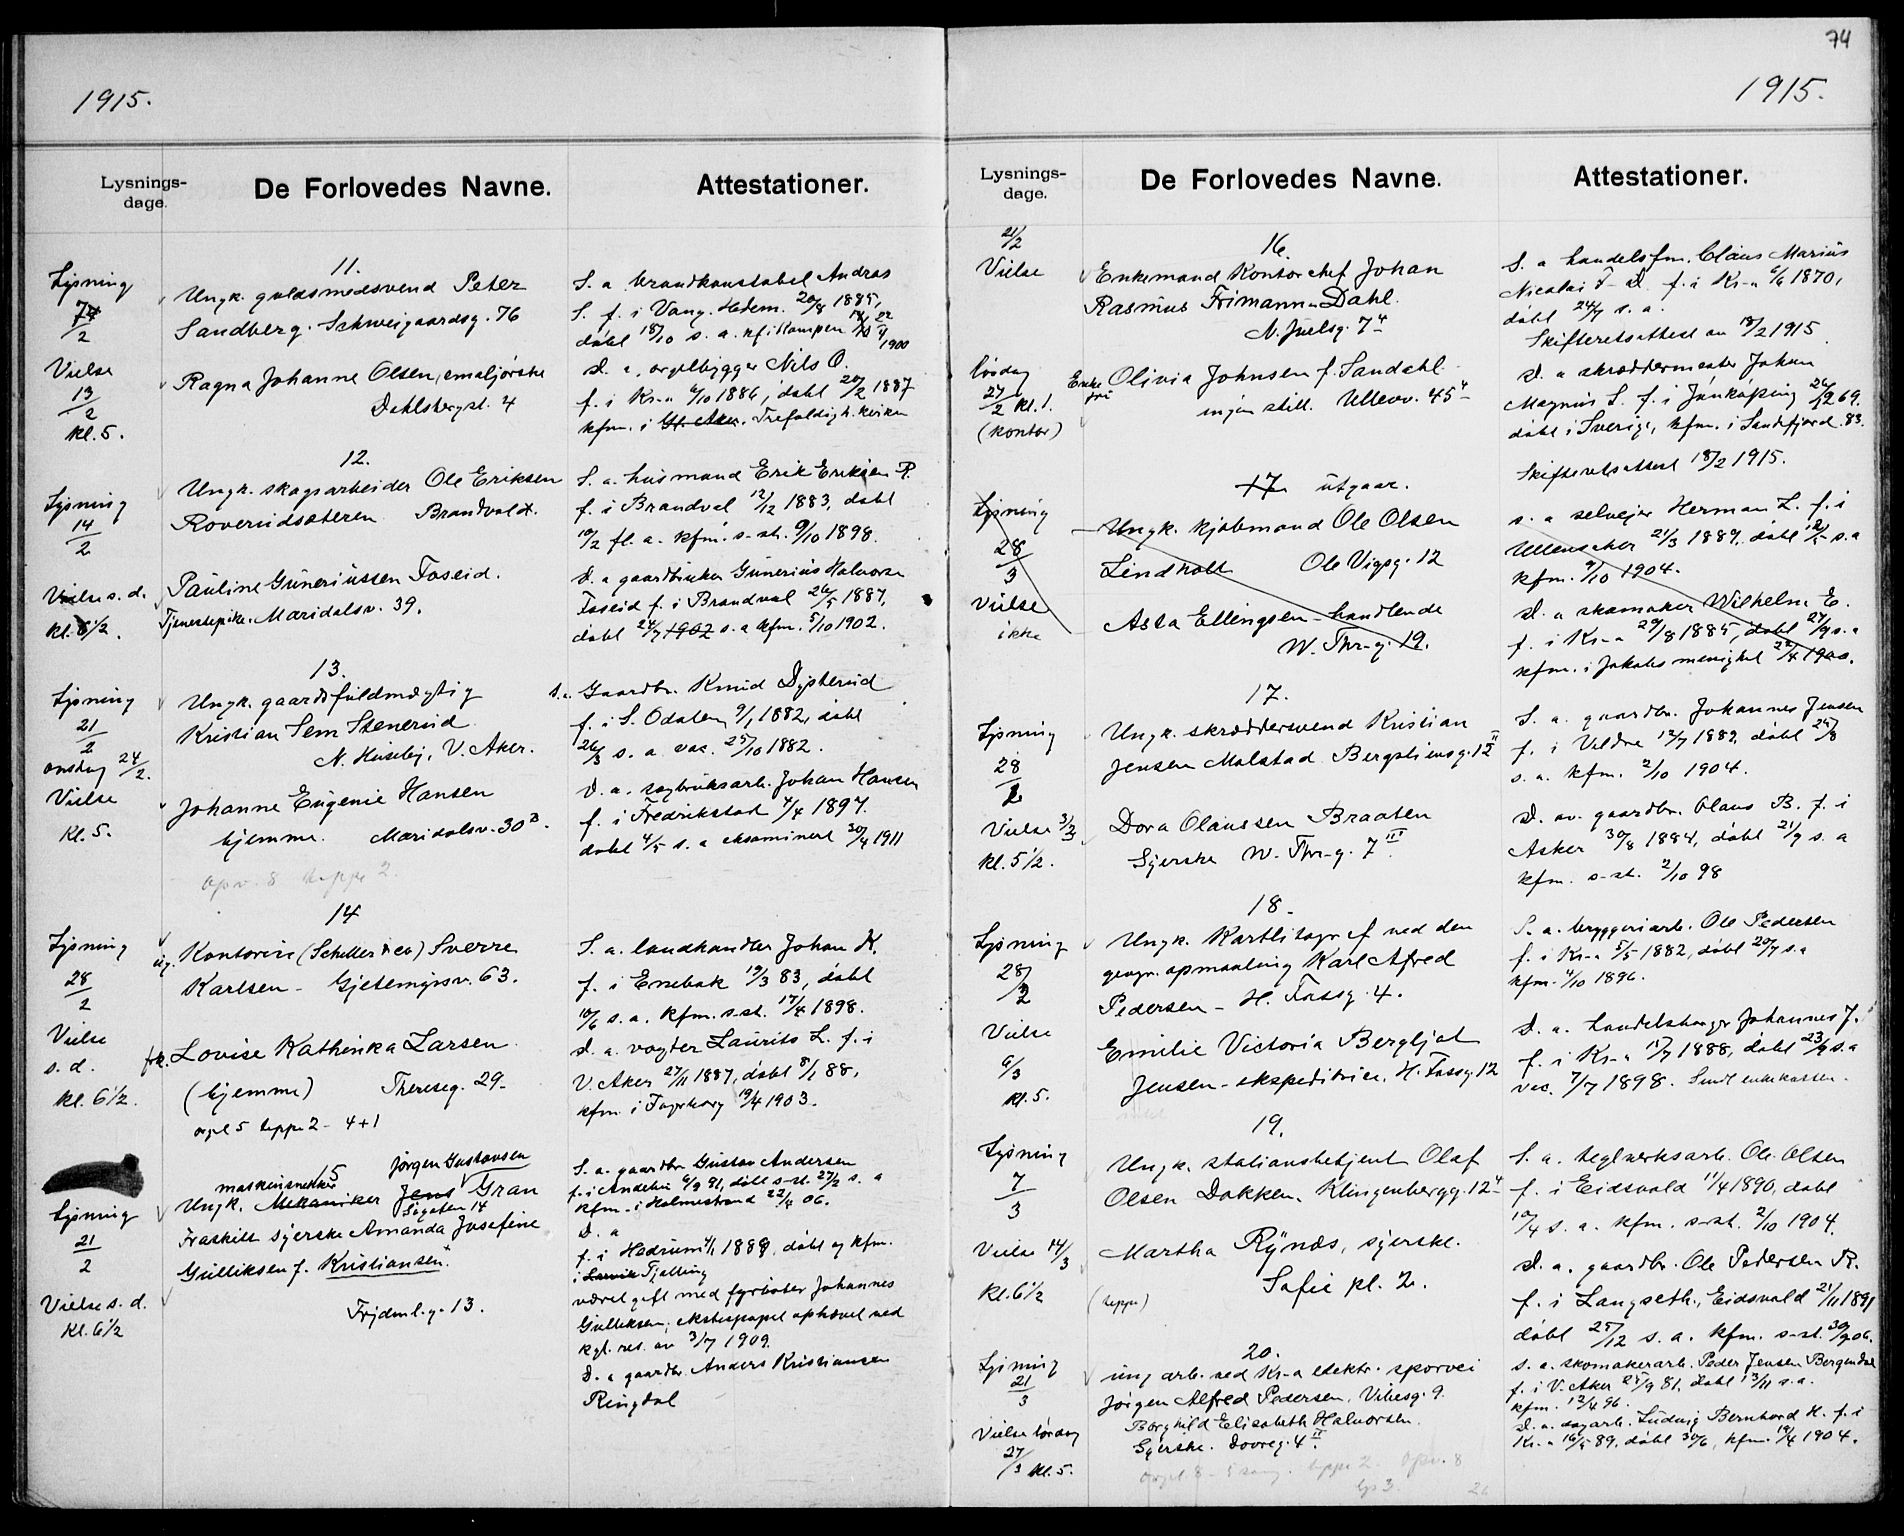 1915.
Lysnings-
dage.
De Forlovedes Navne.
Attestationer.
Lysning
7/2
Vielse
13/2
kl. 5.
11.
Ungk. guldsmedsvend Peter
Sandberg. Schweigaardsg. 76
Ragna Johanne Olsen, emaljørske
Dahlsbergst. 4
S. a. brandkonstabel Andras
S. f. i Vang. Hedem. 20/8 1885,
døbt 18/10 s. a. kf. i Kampen 1900
D. a. orgelbygger Nils O.
f. i Kr.a 6/10 1886, døbt 20/2 1887
kfm. i Gl. Aker. Trefoldigh. kirken
Lysning
14/2
Vielse s. d.
kl. 6½.
12.
Ungk. skogsarbeider Ole Eriksen
Roverudsæteren Brandvold.
Pauline Guneriussen Foseid.
Tjenestepike. Maridalsv. 39.
S. a. husmand Erik Eriksen R.
f. i Brandval 12/12 1883, døbt
10/2 fl. a. kfm. s-st. 9/10 1898.
D. a gaardbruker Gunerius Halvorse
Foseid f. i Brandval 26/5 1887,
døbt 24/7 1902 s. a kfm. 5/10 1902.
Lysning
21/2
onsdag 24/2.
Vielse
Kl. 5.
13.
Ungk. gaardsfuldmægtig
Kristian Sem Stenerud
N. Huseby, V. Aker.
Johanne Eugenie Hansen
hjemme. Maridalsv. 30 B.
opv. 8 teppe 2.
s. a. Gaardbr. Knud Dysterud
f. i S. Odalen 9/1 1882, døbt
26/3 s. a. vac. 25/10 1882.
D. a. sagbruksarb. Johan Hansen
f. i Fredrikstad 4/4 1897.
døbt 4/5 s. a eksaminert 30/4 1911
Lysning
28/2
Vielse
s. d.
kl. 6½.
14
ug. Kontorist (Scheller & co) Sverre
Karlsen - Gjetemyrsv. 63.
frk. Lovise Kathinka Larsen
(hjemme) Thereseg. 29.
orgel 5 teppe 2 - 4+1
S. a. landhandler Johan K.
f. i Enebak 19/3 83, døbt
10/6 s. a. kfm. s-st. 17/4 1898.
D. a. vogter Laurits L. f. i
V. Aker 27/11 1887, døbt 8/1 88,
kfm. i Fagerborg 19/4 1903.
Lysning
21/2
Vielse s. d.
Kl. 6½
15
maskinsnekker Jørgen Gustavsen
Ungk. Mekaniker Jens Gran
Sigaten 14
Fraskilt syerske Amanda Josefine
Gulliksen f. Kristiansen.
Frydenl. g. 13.
S. a. gaardbr Gustav Andersen
f. i Andebu 6/9 91, døbt s-st. 27/2 s. a
kfm. i Holmestrand 22/4 06.
D. a
f. i Hedrum 4/1 1889, døbt og kfm.
i Larvik Tjølling
været gift med fyrbøter Johannes
Gulliksen, ektespagtet ophævet ved
kgl. res. av 3/7 1909.
D. a gaardbr. Anders Kristiansen
Ringdal
74
1915.
Lysnings-
dage.
De Forlovedes Navne.
Attestationer.
21/2
Vielse
lørdag
27/2 kl. 1.
(kontor)
16.
Enkemand Kontorchef Johan
Rasmus Frimann-Dahl.
N. Juelsg. 7 4
Enke fru Olivia Johnsen f. Sandahl
ingen still. Ullevv. 45 4
S. a handelsfm. Claus Marius
Nicolai F- D. f. i Kr.a 6/6 1870,
døbt 24/7 s. a.
Skifteretsattest av 18/2 1915
D. a skræddermester Johan
Magnus S. f. i Jønkøping 26/12 69.
døbt i Sverige, kfm. i Sandefjord 83.
Skifteretsattest 18/2 1915.
Lysning
28/3
Vielse
ikke
17 utgaar.
Ungk. kjøbmand Ole Olsen
Lindholt Ole Vigsg. 12
Asta Ellingsen - handlende
W. Thr-g. 19.
s. a selveier Herman L. f. i
Ullensaker 21/3 1889, døbt s. a
kfm. 9/10 1904.
D. a skomaker Wilhelm E.
f. i Kr.a 29/8 1885, døbt 27/9 s. a
kfm. i Jakobs menighet 22/4 1900.
Lysning
28/2
Vielse 3/3
kl. 5½.
17.
Ungk. skræddersvend Kristian
Jensen Malstad Bergsliensg. 12 II
Dora Olaussen Braaten
Syerske W. Thr-g. 7 III
S. a. gaardbr. Johannes Jensen
f. i Veldre 12/7 1889, døbt 25/8
s. a. kfm. 2/10 1904.
D. av. gaardbr. Olaus B. f. i
Asker 30/8 1884, døbt 21/9 s. a
kfm. s-st. 2/10 98
Lysning
28/2
Vielse
6/3
kl. 5.
18.
Ungk. Kartlitograf ved den
geogr. opmaaling Karl Alfred
Pedersen - H. Tostsg. 4.
Emilie Victoria Bergljot
Jensen - ekspeditrice. H. Tostsg. 12
S. a. bryggeriarb. Ole Pedersen
f. i Kr.a 5/5 1882, døbt 20/7 s. a
kfm. 4/10 1896.
D. a. handelsborger Johannes J.
f. i Kr.a 11/7 1888, døbt 23/9 s. a
vac. 7/7 1898. Sendt enkekassen.
Lysning
7/3
Vielse 14/3
Kl. 6½
19.
Ungk. stationsbetjent Olaf
Olsen Dokken. Klingenbergg. 12 4
Martha Rynds, syerske.
Sofie pl. 2.
(teppe)
S. a. teglverksarb. Ole Olsen
f. i Eidsvold 11/4 1890, døbt
10/4 s. a. kfm. s-st. 2/10 1904.
D. a. gaardbr. Ole Pedersen R.
f. i Langseth, Eidsvold 21/11 1891
døbt 25/12 s. a. kfm. s-st. 30/9 06.
Lysning
21/3
Vielse lørdag
27/3 kl. 5.
20.
ung arb. ved Kr-a elektr. sporvei
Jørgen Alfred Pedersen, Vibesg. 9.
Borghild Elisabeth Halvorsen.
Syerske. Dovreg. 4 II
orgel 8 - 5 sang. teppe 2. opv. 8
s. a. skomakerarb. Peder Jensen Bergendal
f. i V. Aker 25/9 81, døbt 13/11 s. a.
kfm. 12/4 96.
D. a. dagarb. Ludvig Bernhard H. f. i
Kr.a 16/5 89, døbt 30/6, kfm. 19/4 1904.